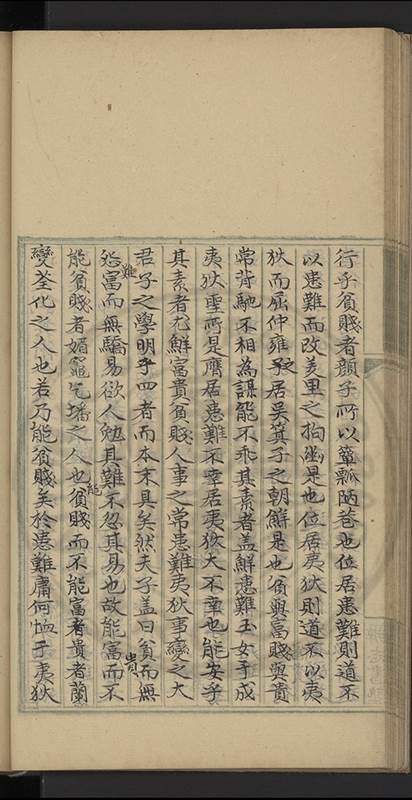 行乎貧賤者顔子所以簞瓢陋巷也位居患難則道不
以患難而改羑里之拘幽是也位居夷狄則道不以夷
狄而屈仲雍居吳箕子之朝鮮是也貧與富賤與貴
常背馳不相為謀能不乖其素者盖鮮患難玉女于成
夷狄聖所是膺居患難不幸居夷狄大不幸也能安乎
其素者尤鮮富貴貧賤人事之常患難夷狄事變之大
君子之學明乎四者而本末具矣然夫子盖曰貧而無
怨難富而無驕易欲人勉其難不忽其易也故能富貴而不
能貧賤者媚竈乞墦之人也能貧賤而不能富者貴者蘭
變荃化之人也若乃能貧賤矣於患難庸何恤于夷狄